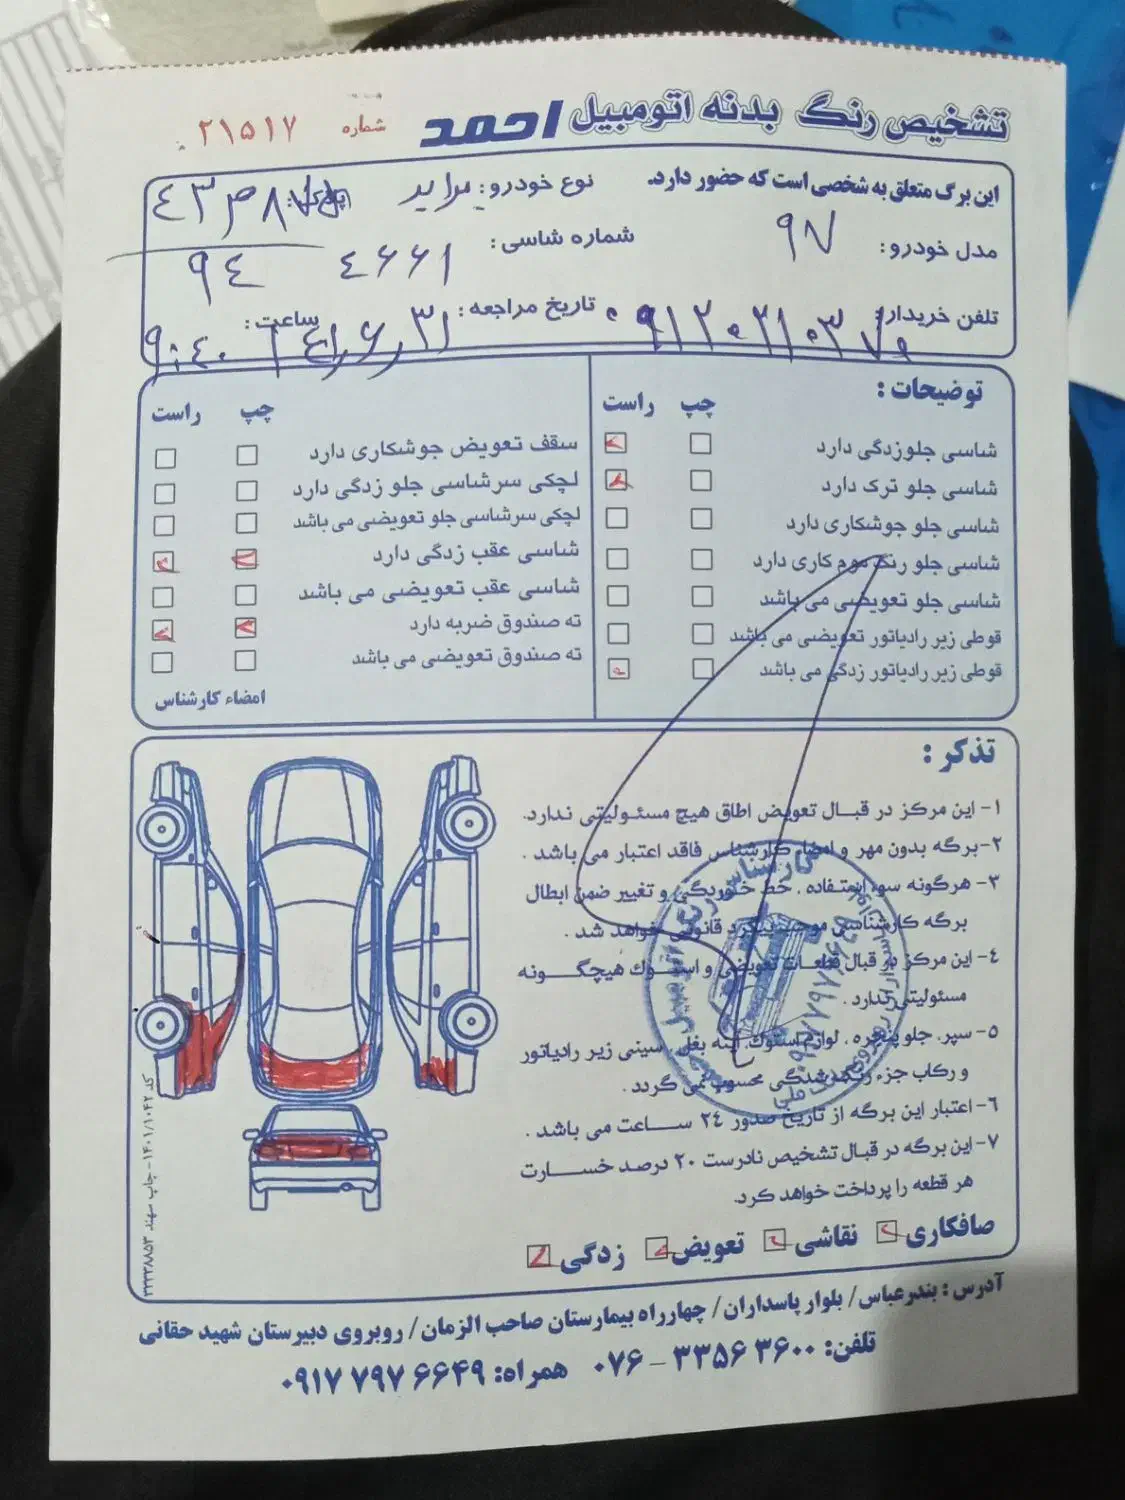 تشخیص رنگ بدنه اتومبیل احمد
شماره ۲۱۵۱۷
این برگ متعلق به شخصی است که حضور دارد.
نوع خودرو: پراید
پلاک: ۴۳ ص ۸۷۱
۹۴
مدل خودرو: ۹۷
شماره شاسی: ۴۶۶۱
تلفن خریدار:
تاریخ مراجعه:
ساعت: ۹:۴۰
توضیحات:
چپ راست
شاسی جلوزدگی دارد
شاسی جلو ترک دارد
شاسی جلو جوشکاری دارد
شاسی جلو رنگ موم کاری دارد
شاسی جلو تعویضی می باشد
قوطی زیر رادیاتور تعویضی می باشد
قوطی زیر رادیاتور زدگی می باشد
چپ راست
سقف تعویض جوشکاری دارد
لچکی سرشاسی جلو زدگی دارد
لچکی سرشاسی جلو تعویضی می باشد
شاسی عقب زدگی دارد
شاسی عقب تعویضی می باشد
ته صندوق ضربه دارد
ته صندوق تعویضی می باشد
امضاء کارشناس
تذکر:
۱- این مرکز در قبال تعویض اطاق هیچ مسئولیتی ندارد.
۲- برگه بدون مهر و امضاء کارشناس فاقد اعتبار می باشد.
۳- هرگونه سوء استفاده، خط خوردگی و تغییر ضمن ابطال
برگه کارشناسی موجب پیگرد قانونی خواهد شد.
۴- این مرکز در قبال قطعات تعویضی و استوک هیچگونه
مسئولیتی ندارد.
۵- سپر، جلو پنجره، لوازم استوک، آینه بغل، سینی زیر رادیاتور
و رکاب جزء رنگ شدگی محسوب نمی گردد.
۶- اعتبار این برگه از تاریخ صدور ۲۴ ساعت می باشد.
۷- این برگه در قبال تشخیص نادرست ۲۰ درصد خسارت
هر قطعه را پرداخت خواهد کرد.
صافکاری نقاشی تعویض زدگی
کد ۱۴۰۱/۱۰۴۲ - چاپ سهند ۳۲۲۳۸۸۵۳
آدرس: بندرعباس/ بلوار پاسداران/ چهارراه بیمارستان صاحب الزمان/ روبروی دبیرستان شهید حقانی
تلفن: ۳۶۰۰ ۳۳۵۶ - ۰۷۶ همراه: ۶۶۴۹ ۷۹۷ ۰۹۱۷